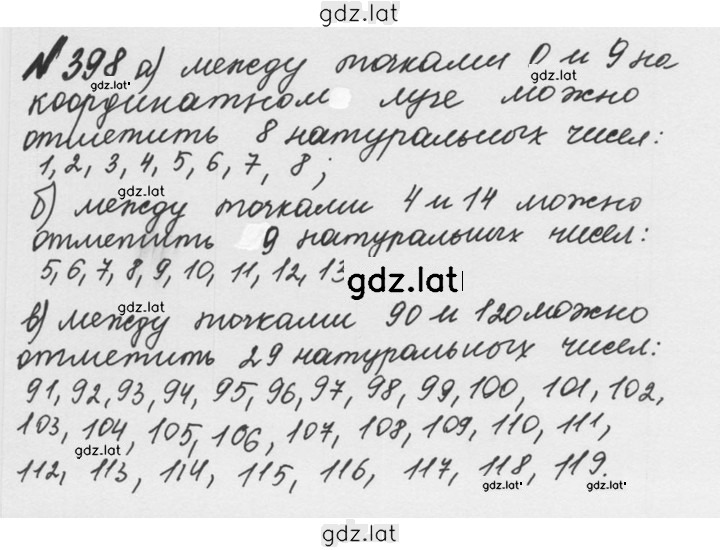 gdz.lat
№ 398 а) между точками 0 и 9 на
gdz.lat
координатном луче можно
отметить 8 натуральных чисел:
1, 2, 3, 4, 5, 6, 7, 8;
gdz.lat
б) между точками 4 и 14 можно
отметить 9 натуральных чисел:
5, 6, 7, 8, 9, 10, 11, 12, 13
gdz.lat
gdz.lat
в) между точками 90 и 120 можно
отметить 29 натуральных чисел:
91, 92, 93, 94, 95, 96, 97, 98, 99, 100, 101, 102,
103, 104, 105, 106, 107, 108, 109, 110, 111,
gdz.lat
112, 113, 114, 115, 116, 117, 118, 119.
gdz.lat gdz.lat
gdz.lat